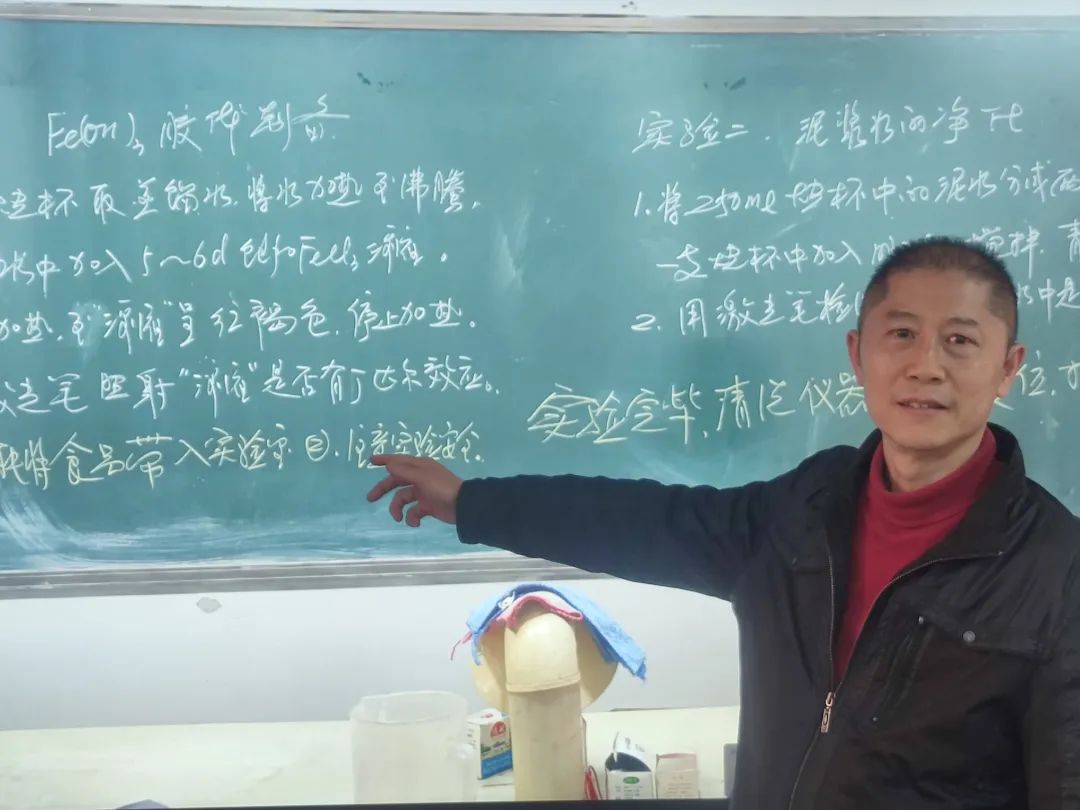 Fe(OH)₃胶体制备
烧杯取蒸馏水,将水加热至沸腾,
水中加入5~6d饱和FeCl₃溶液。
加热,至"溶液"呈红褐色,停止加热。
光笔照射"溶液"是否有丁达尔效应。
将食品带入实验室②.注意实验安全.
实验二.泥浆水的净化
1.将250ml烧杯中的泥水分成两
一支烧杯中加入明 搅拌,静
2.用激光笔检 水中是
实验完毕,清洗仪器 位,